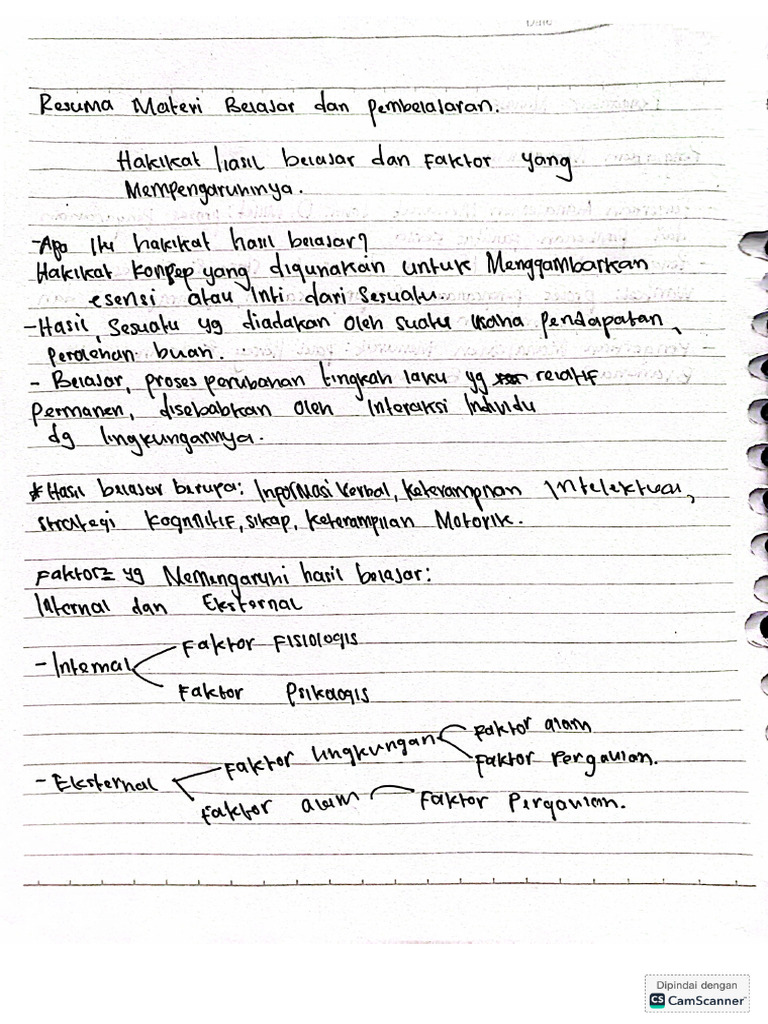 Resuma Materi Belajar dan Pembelalaran.
Hakikat hasil belajar dan Faktor yang
Mempengaruhinya.
- Apa Itu hakikat hasil belajar?
Hakikat konsep yang digunakan untuk Menggambarkan
esensi atau Inti dari Sesuatu.
- Hasil, Sesuatu yg diadakan oleh suatu usaha pendapatan,
perolehan buah.
- Belajar, proses perubahan tingkah laku yg relatif
permanen, disebabkan oleh Interaksi Individu
dg lingkungannya.
* Hasil belajar berupa: Informasi Verbal, keterampilan Intelektual,
strategi kognitif, sikap, keterampilan Motorik.
Faktor2 yg Memengaruhi hasil belajar:
Internal dan Eksternal
- Internal
Faktor Fisiologis
Faktor Psikologis
- Eksternal
Faktor lingkungan
Faktor alam
Faktor Pergaulan.
Faktor alam
Faktor Pergaulan.
Dipindai dengan
CS CamScanner